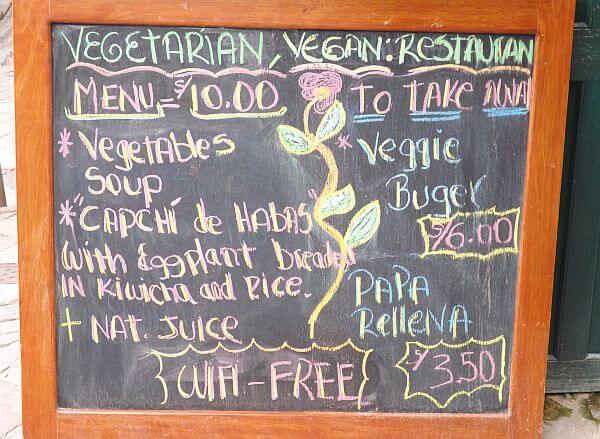 VEGETARIAN, VEGAN: RESTAURAN
MENU = S/10.00
* Vegetables
SOUP
* "CAPCHÍ de HABAS"
with Eggplant breaded
IN Kiwicha and Rice.
+ NAT. JUICE
TO TAKE AWAY
* Veggie
Buger
S/6.00
PAPA
RelleNA
S/3.50
WIFI - FREE